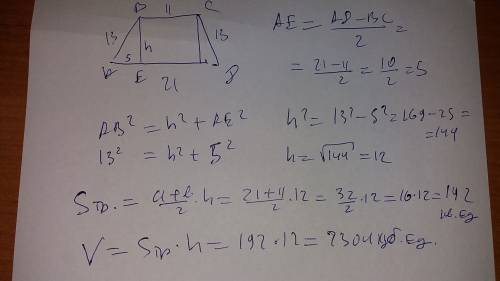 B 11 C
13 h 13
A 5 E D
21
AE = (AD-BC)/2 =
= (21-11)/2 = 10/2 = 5
AB² = h² + AE²
13² = h² + 5²
h² = 13² - 5² = 169 - 25 =
= 144
h = √144 = 12
Sтр. = (a+b)/2 · h = (21+11)/2 · 12 = 32/2 · 12 = 16 · 12 = 192
кв. ед
V = Sтр · h = 192 · 12 = 2304 куб. ед.